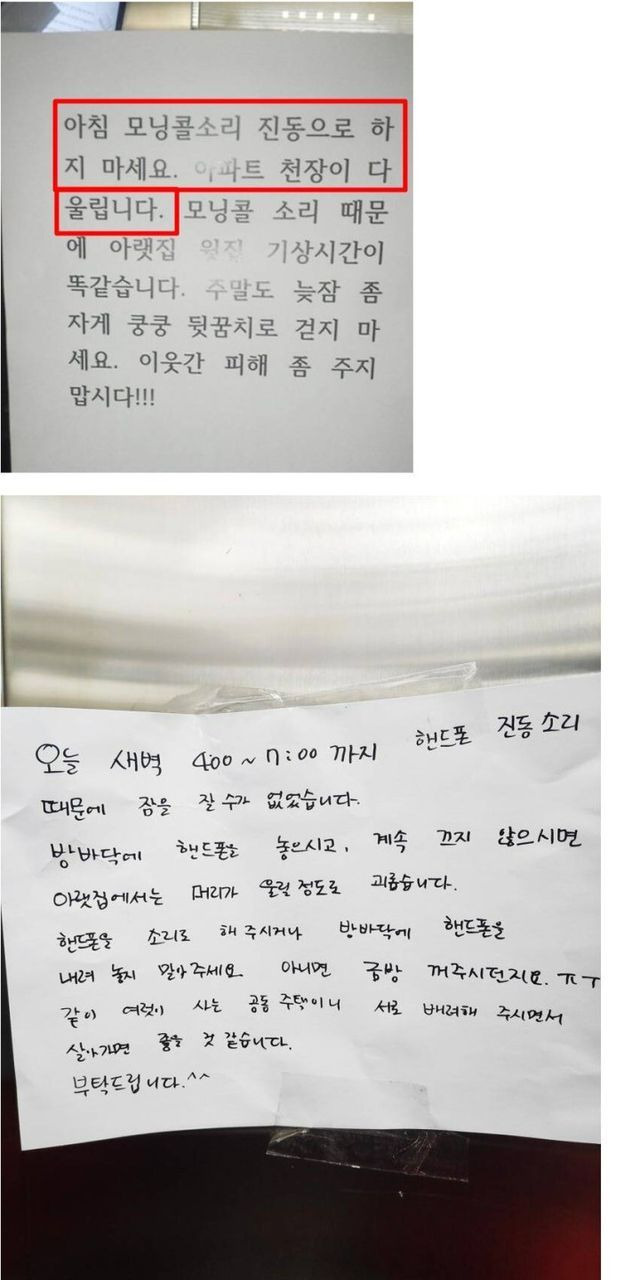 아침 모닝콜소리 진동으로 하
지 마세요. 아파트 천장이 다
울립니다. 모닝콜 소리 때문
에 아랫집 윗집 기상시간이
똑같습니다. 주말도 늦잠 좀
자게 쿵쿵 뒷꿈치로 걷지 마
세요. 이웃간 피해 좀 주지
맙시다!!!
오늘 새벽 4:00 ~ 7:00 까지 핸드폰 진동소리
때문에 잠을 잘 수가 없었습니다.
방바닥에 핸드폰을 놓으시고, 계속 끄지 않으시면
아랫집에서는 머리가 울릴 정도로 괴롭습니다.
핸드폰을 소리로 해 주시거나 방바닥에 핸드폰을
내려 놓지 말아주세요. 아니면 금방 꺼주시던지요. ㅠㅜ
같이 여럿이 사는 공동 주택이니 서로 배려해 주시면서
살아가면 좋을 것 같습니다.
부탁드립니다.^^